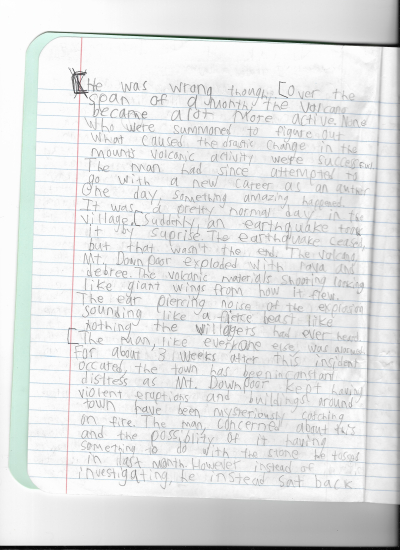 [He was wrong though. [Over the
span of a month, the volcano
became alot more active. None
who were summoned to figure out
what caused the drastic change in the
mount's volcanic activity were successful.
The man had since attempted to
go with a new career as an author.
One day, something amazing happened.
It was a pretty normal day in the
village. [Suddenly, an earthquake took
it by suprise. The earthquake ceased,
but that wasn't the end. The volcano
Mt. Downpoor exploded with lava and
debree. The volcanic materials shooting looking
like giant wings from how it flew.
The ear piercing noise of the explosion
sounding like a fierce beast like
nothing the villagers had ever heard.
[The man, like everyone else, was
For about 3 weeks after this incident
occured, the town has been in constant
distress as Mt. Downpoor kept having
violent eruptions and buildings around
town have been mysteriously catching
on fire. The man, concerned about this
and the possiblity of it having
something to do with the stone he tossed
in last month. However instead of
investigating, he instead sat back